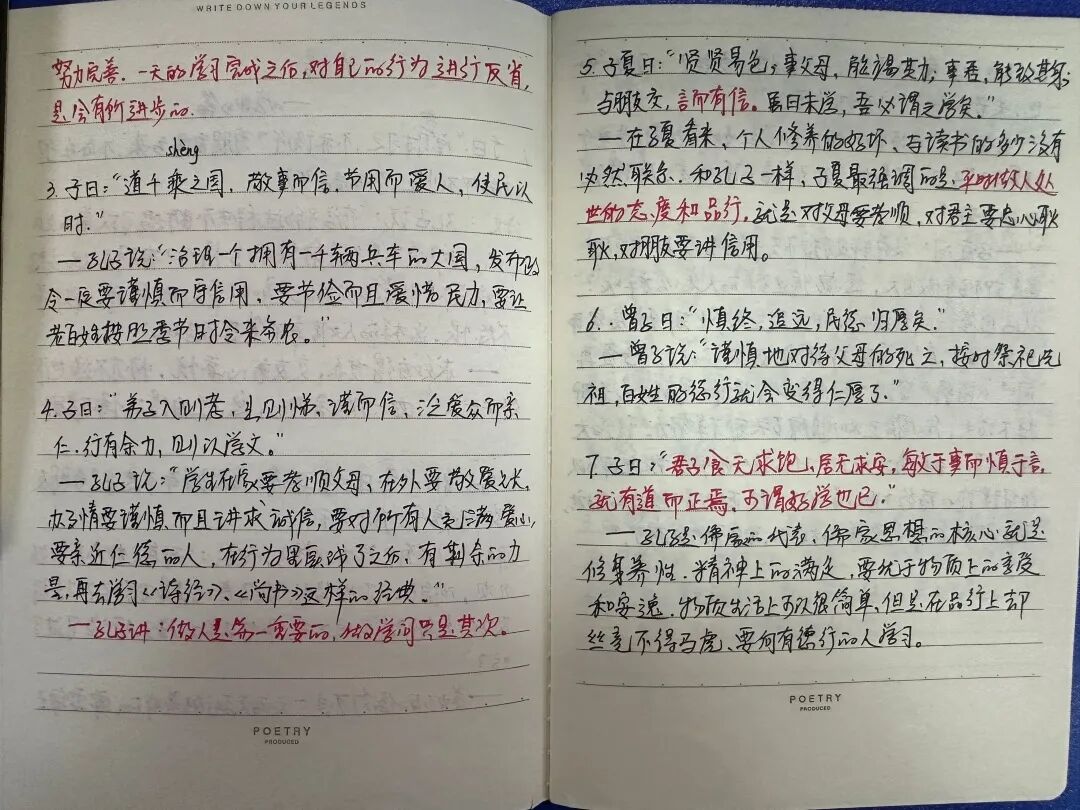 WRITE DOWN YOUR LEGENDS
努力完善.一天的学习完成之后,对自己的行为进行反省,
是会有所进步的.
shèng
3.子曰:"道千乘之国,敬事而信,节用而爱人,使民以
时."
—孔子说:"治理一个拥有一千辆兵车的大国,发布政
令一定要谨慎而守信用,要节俭而且爱惜民力,要让
老百姓按照季节时令来务农。"
4.子曰:"弟子入则孝,出则悌,谨而信,泛爱众而亲
仁.行有余力,则以学文."
—孔子说:"学生在家要孝顺父母,在外要敬爱兄长,
办事情要谨慎而且讲求诚信,要对所有人充满爱心,
要亲近仁德的人,在行为里实践了之后,有剩余的力
量,再去学习《诗经》、《尚书》这样的经典."
—孔子讲:做人是第一重要的,做学问只是其次。
POETRY
PRODUCED
5.子夏曰:"贤贤易色;事父母,能竭其力;事君,能致其身;
与朋友交,言而有信。虽曰未学,吾必谓之学矣."
—在子夏看来,个人修养的好坏,与读书的多少没有
必然联系.和孔子一样,子夏最强调的是,平时做人处
世的态度和品行,就是对父母要孝顺,对君主要忠心耿
耿,对朋友要讲信用。
6.曾子曰:"慎终,追远,民德归厚矣."
—曾子说:"谨慎地对待父母的死亡,按时祭祀先
祖,百姓的德行就会变得仁厚了."
7.子曰:"君子食无求饱,居无求安,敏于事而慎于言,
就有道而正焉,可谓好学也已."
—孔子是儒家的代表、儒家思想的核心就是
修身养性.精神上的满足,要优于物质上的享受
和安逸.物质生活上可以很简单,但是在品行上却
丝毫不得马虎、要向有德行的人学习。
POETRY
PRODUCED